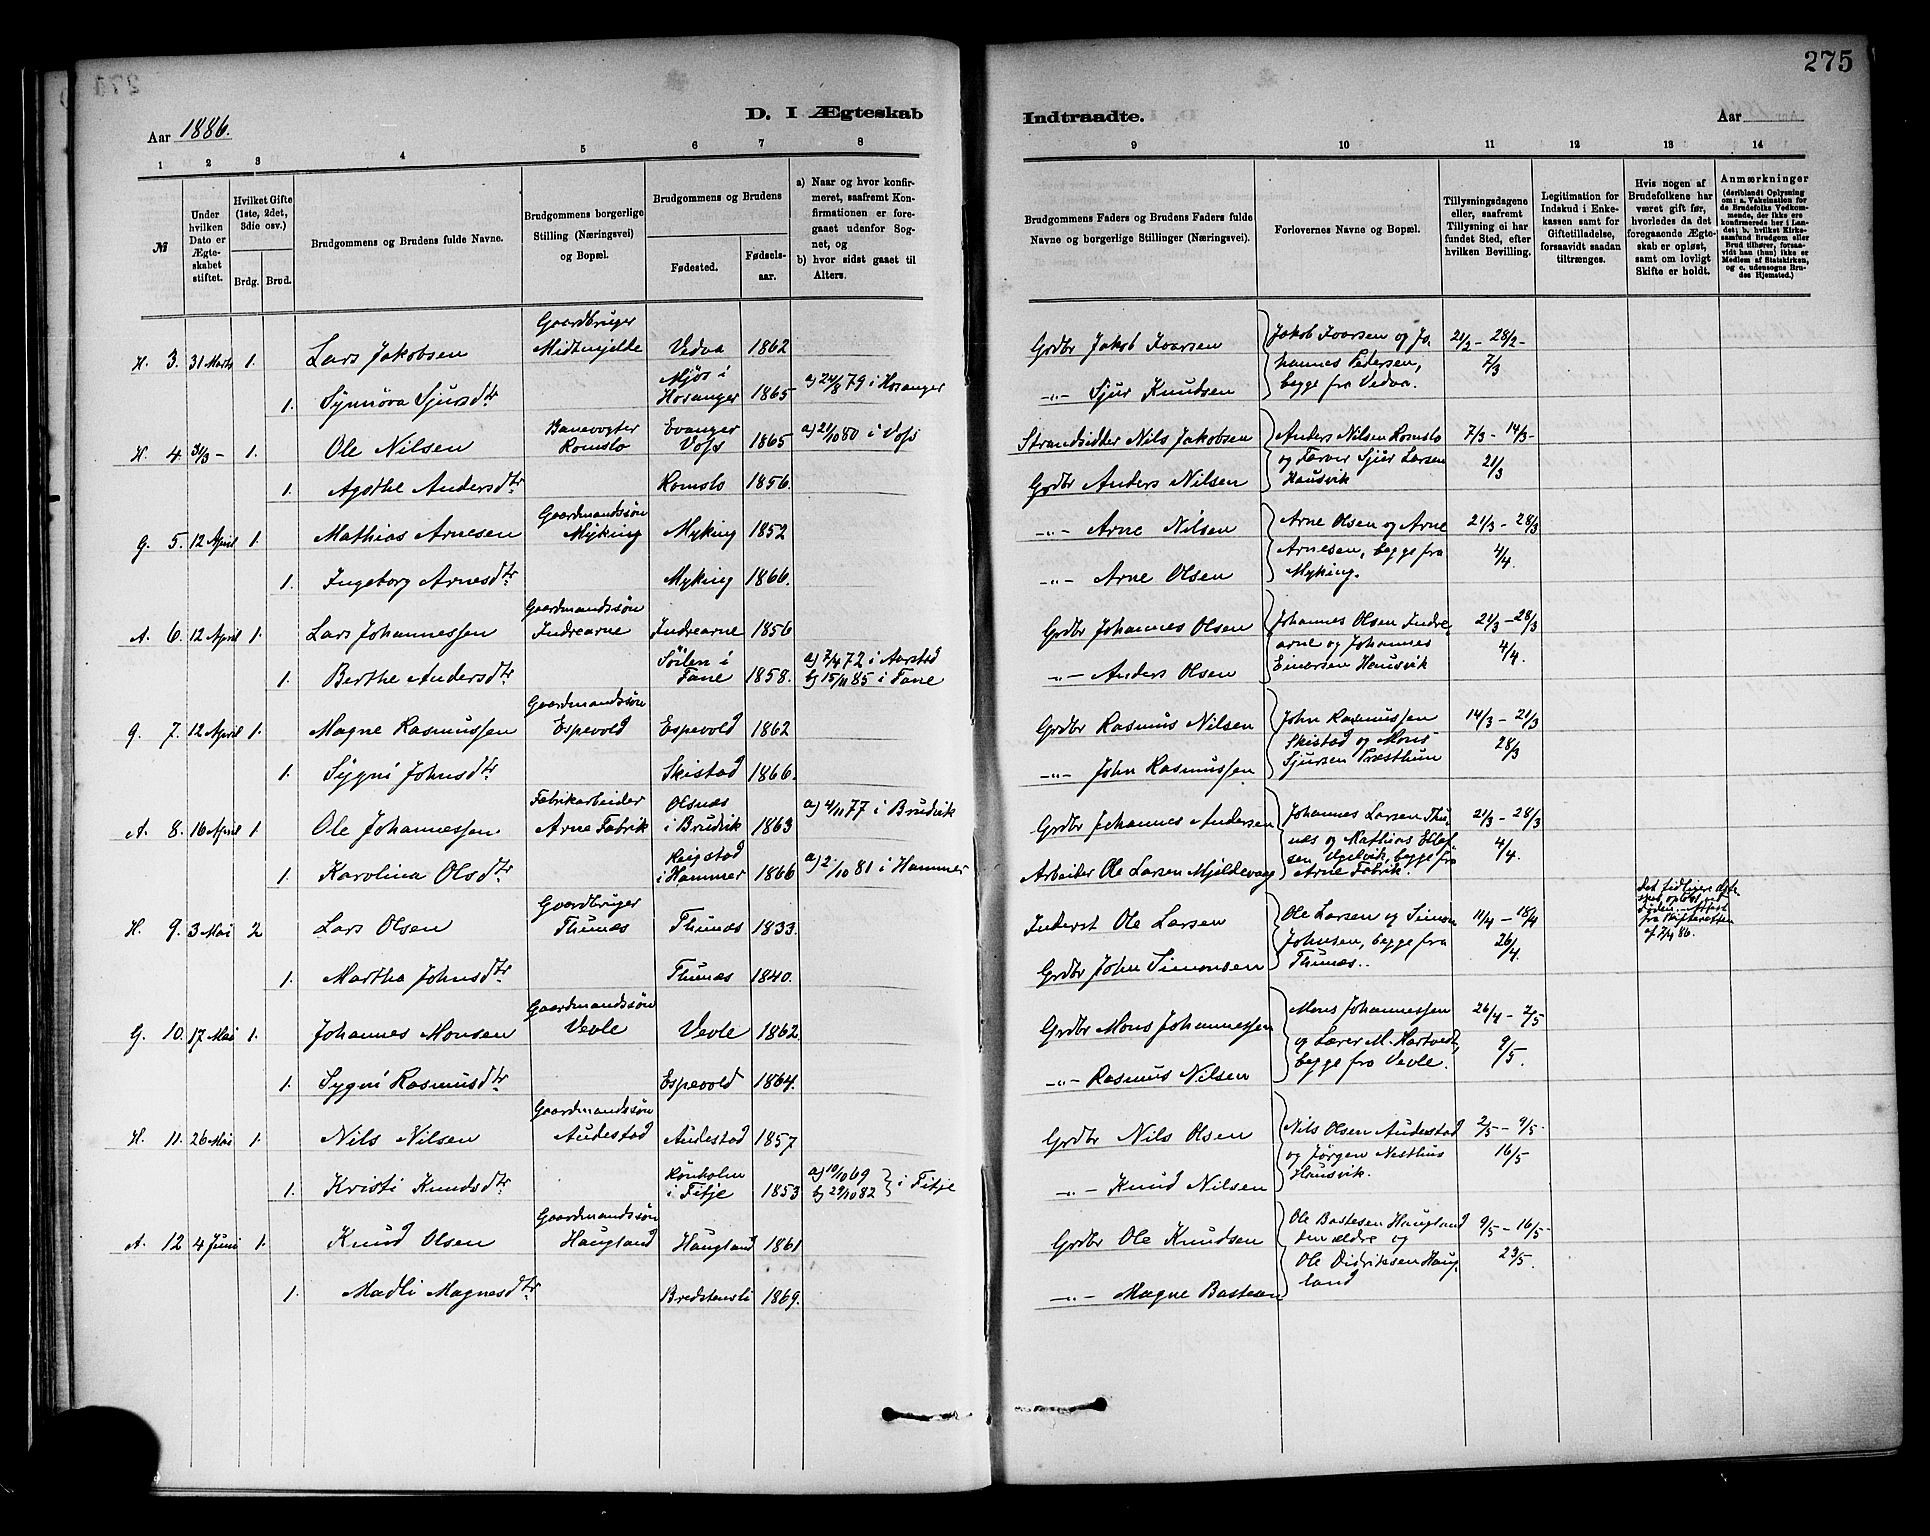 275
D. I Ægteskab
Indtraadte.
Aar 1886.
Aar
1 2 3 4 5 6 7 8
9 10 11 12 13 14
№
Under hvilken Dato er Ægteskabet stiftet.
Hvilket Gifte (1ste, 2det, 3die osv.)
Brdg. Brud.
Brudgommens og Brudens fulde Navne.
Brudgommens borgerlige Stilling (Næringsvei) og Bopæl.
Brudgommens og Brudens
Fødested.
Fødselsaar.
a) Naar og hvor konfirmeret, saafremt Konfirmationen er foregaaet udenfor Sognet, og
b) hvor sidst gaaet til Alters.
Brudgommens Faders og Brudens Faders fulde Navne og borgerlige Stillinger (Næringsvei).
Forlovernes Navne og Bopæl.
Tillysningsdagene eller, saafremt Tillysning ei har fundet Sted, efter hvilken Bevilling.
Legitimation for Indskud i Enkekassen samt for Giftetilladelse, forsaavidt saadan tiltrænges.
Hvis nogen af Brudefolkene har været gift før, hvorledes da det foregaaende Ægteskab er opløst, samt om lovligt Skifte er holdt.
Anmærkninger (deriblandt Oplysning om: a. Vakcination for de Brudefolks Vedkommende, der ikke ere konfirmerede her i Landet; b. hvilket Kirkesamfund Brudgom eller Brud tilhører, forsaavidt han (hun) ikke er Medlem af Statskirken, og c. udensogns Brudes Hjemsted.)
H. 3. 31 Marts 1. Lars Jakobsen Gaardbruger Midtmjelde Vedvo 1862 Grdbr Jakob Ivarsen
1. Synnöva Sjursdtr Mjös i Hosanger 1865 a) 24/8 79 i Hosanger -"- Sjur Knudsen
Jakob Ivarsen og Johannes Pedersen, begge fra Vedvo. 21/2 - 28/2 - 7/3
H. 4. 31/3 - 1. Ole Nilsen Banevogter Romslo Evanger Voss 1865 a) 21/10 80 i Voss Strandsidder Nils Jakobsen
1. Agathe Andersdtr Romslo 1856. Grdbr Anders Nilsen
Anders Nilsen Romslo og Farver Sjur Larsen Hausvik 7/3 - 14/3 - 21/3
G. 5. 12 April 1. Mathias Arnesen Gaardmandssön Myking Myking 1852 -"- Arne Nilsen
1. Ingeborg Arnesdtr Myking 1866. -"- Arne Olsen
Arne Olsen og Arne Arnesen, begge fra Myking. 21/3 - 28/3 4/4.
A. 6. 12 April 1. Lars Johannessen Gaardmandssön Indrearne Indrearne 1856 Grdbr Johannes Olsen
1. Berthe Andersdtr Söilen i Fane 1858. a) 7/4 72 i Aarstad b) 15/11 85 i Fane -"- Anders Olsen
Johannes Olsen Indrearne og Johannes Einarsen Hausvik 21/3 - 28/3 4/4.
G. 7. 12 April 1. Magne Rasmussen Gaardmandssön Espevold Espevold 1862 Grdbr Rasmus Nilsen
1. Sygni Johnsdtr Skistad 1866. -"- John Rasmussen
John Rasmussen Skistad og Mons Sjursen Præsthun 14/3 - 21/3 28/3
A. 8. 16 April 1. Ole Johannessen Fabrikarbeider Arne Fabrik Olsnæs i Brudvik 1863 a) 4/11 77 i Brudvik Grdbr Johannes Andersen
1. Karolina Olsdtr Reigstad i Hammer 1866 a) 2/10 81 i Hammer Arbeider Ole Larsen Mjeldevang
Johannes Larsen Thunæs og Mathias begge fra Arne Fabrik. 21/3 - 28/3 4/4.
H. 9. 3 Mai 2 Lars Olsen Gaardbruger Thunæs Thunæs 1833. Inderst Ole Larsen
1. Martha Johnsdtr Thunæs 1840. Grdbr John Simonsen
Ole Larsen og Simon Johnsen, begge fra Thunæs. 11/4 - 18/4 26/4
Det tidligere opløst ved Döden. Attest fra Skifteretten af 7/4 86.
G. 10. 17 Mai 1. Johannes Monsen Gaardmandssön Vevle Vevle 1862. Grdbr Mons Johannessen
1. Sygni Rasmusdtr Espevold 1864. -"- Rasmus Nilsen
Mons Johannessen og Lærer M. Hartvedt, begge fra Vevle. 26/4 - 2/5 9/5.
H. 11. 26 Mai 1. Nils Nilsen Gaardmandssön Audestad Audestad 1857 Grdbr Nils Olsen
1. Kristi Knudsdtr Rönholm i Fitje 1853 a) 10/10 69 b) 29/10 82 i Fitje -"- Knud Nilsen
Nils Olsen Audestad og Jørgen Nesthus Hausvik. 2/5 - 9/5 - 16/5
A. 12 4 Juni 1. Knud Olsen Gaardmandssön Haugland Haugland 1861 Grdbr Ole Knudsen
1. Madli Magnesdtr Bredstensli 1869. -"- Magne Bastesen
Ole Bastesen Haugland den ældre og Ole Didriksen Haugland 9/5 - 16/5 - 23/5.